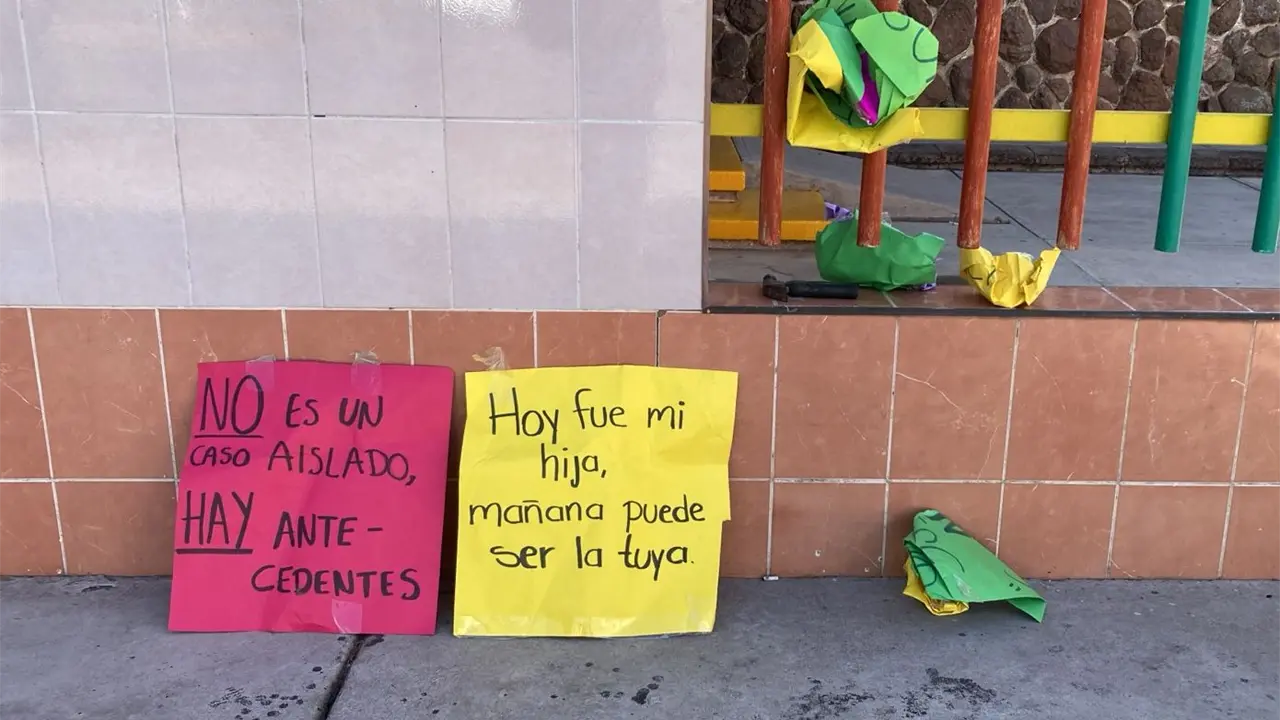 NO ES UN
CASO AISLADO,
HAY ANTE-
CEDENTES
Hoy fue mi
hija,
mañana puede
ser la tuya.